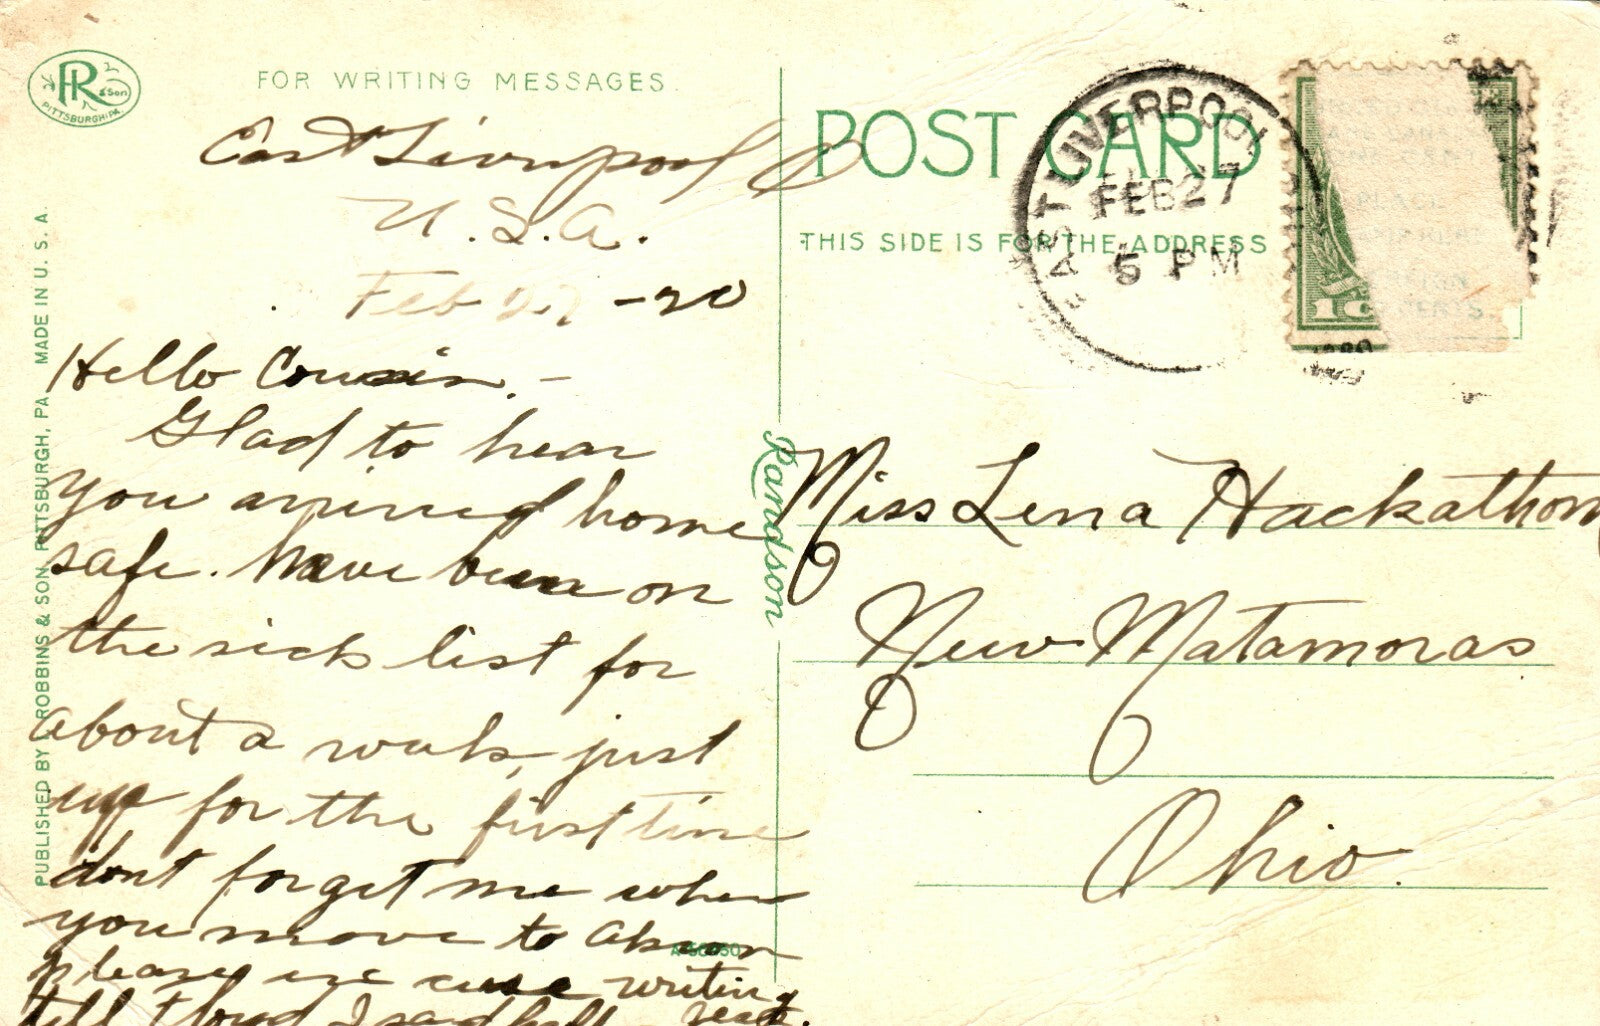 PR & Son
PITTSBURGH, PA.
FOR WRITING MESSAGES.
East Liverpool O
U.S.A.
Feb 27 -20
Hello Cousin. -
Glad to hear
you arrived home
safe. Have been on
the sick list for
about a week, just
up for the first time
dont forget me when
you move to Akron
please ex cuse writing
till Floyd I said hello -
PUBLISHED BY I. ROBBINS & SON, PITTSBURGH, PA. MADE IN U. S. A.
Randson
POST CARD
THIS SIDE IS FOR THE ADDRESS
EAST LIVERPOOL
FEB 27
5 PM
1920
1c
PLACE
Miss Lena Hackathorn
New Matamoras
Ohio.